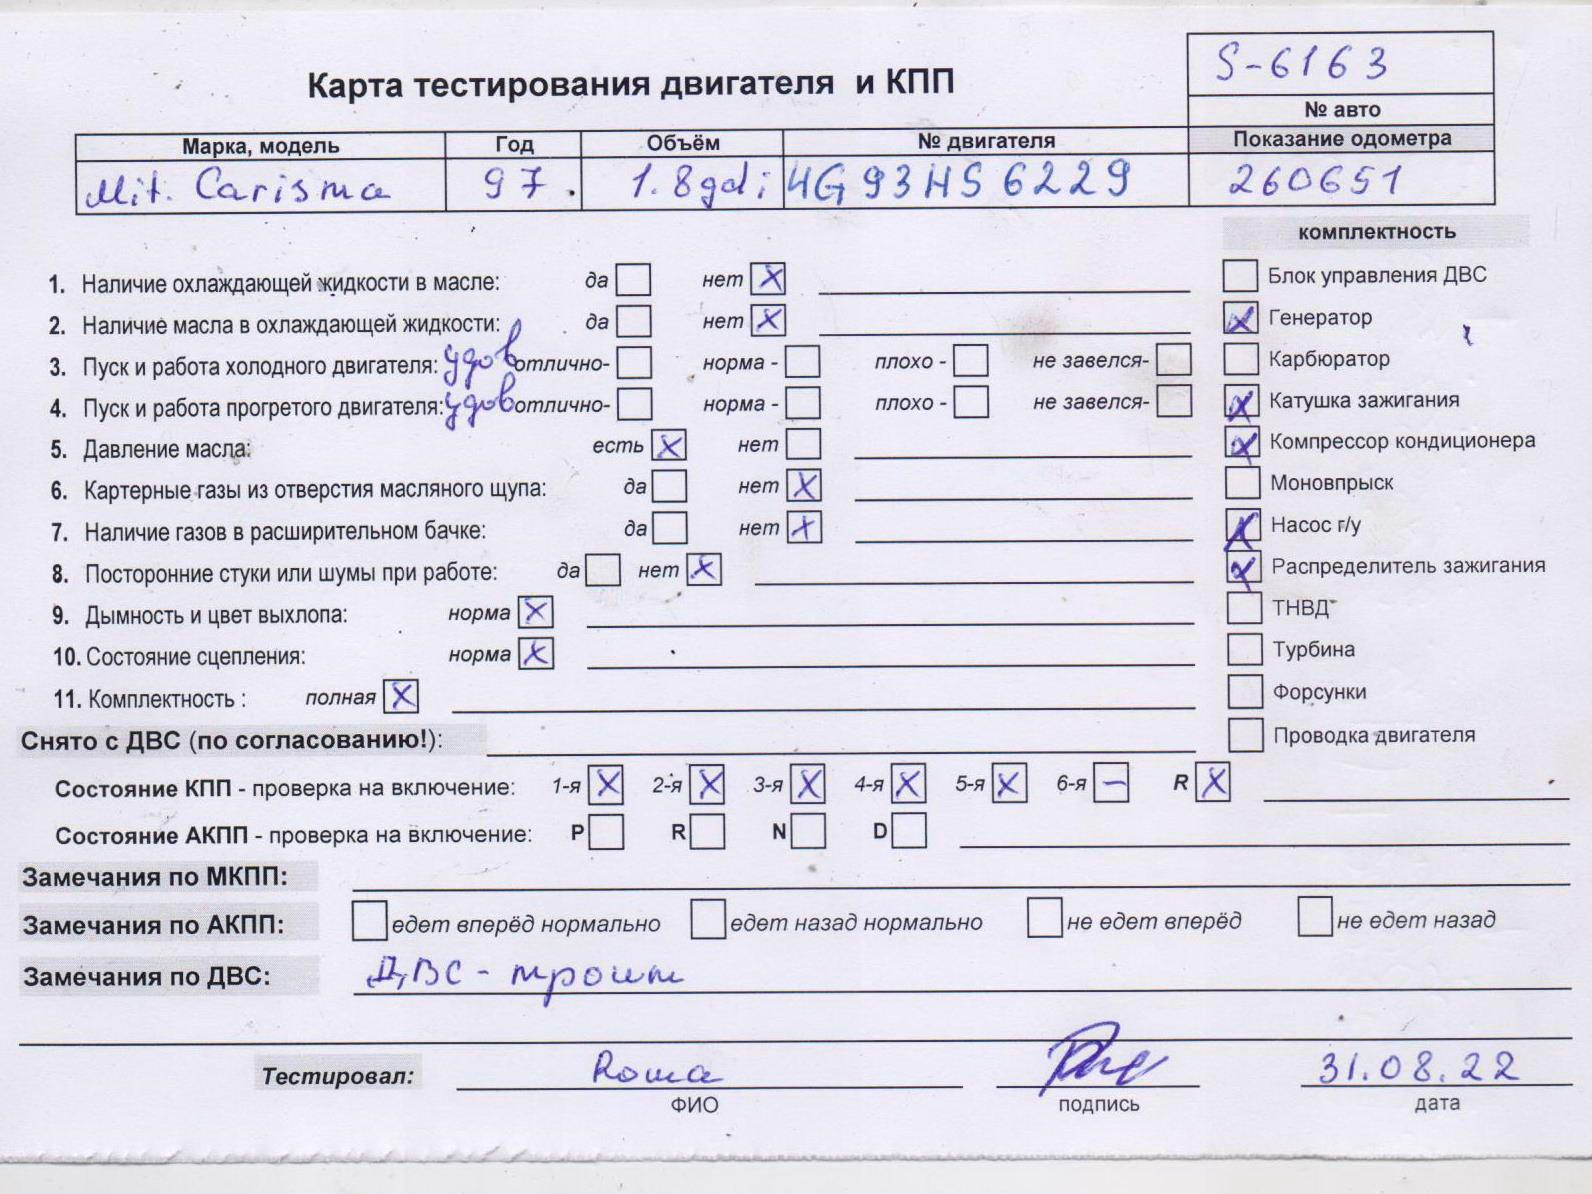 S-6163
Карта тестирования двигателя и КПП
№ авто
Марка, модель Год Объём № двигателя Показание одометра
Mit. Carisma 97. 1.8gdi 4G93HS6229 260651
комплектность
1. Наличие охлаждающей жидкости в масле: да нет X
Блок управления ДВС
2. Наличие масла в охлаждающей жидкости: да нет X
X Генератор
3. Пуск и работа холодного двигателя: удов отлично- норма - плохо - не завелся-
Карбюратор
4. Пуск и работа прогретого двигателя: удов отлично- норма - плохо - не завелся-
X Катушка зажигания
5. Давление масла: есть X нет
X Компрессор кондиционера
6. Картерные газы из отверстия масляного щупа: да нет X
Моновпрыск
7. Наличие газов в расширительном бачке: да нет X
X Насос г/у
8. Посторонние стуки или шумы при работе: да нет X
X Распределитель зажигания
9. Дымность и цвет выхлопа: норма X
ТНВД
10. Состояние сцепления: норма X
Турбина
11. Комплектность : полная X
Форсунки
Снято с ДВС (по согласованию!):
Проводка двигателя
Состояние КПП - проверка на включение: 1-я X 2-я X 3-я X 4-я X 5-я X 6-я – R X
Состояние АКПП - проверка на включение: P R N D
Замечания по МКПП:
Замечания по АКПП: едет вперёд нормально едет назад нормально не едет вперёд не едет назад
Замечания по ДВС: ДВС - троит
Тестировал: Рома 31.08.22
ФИО подпись дата